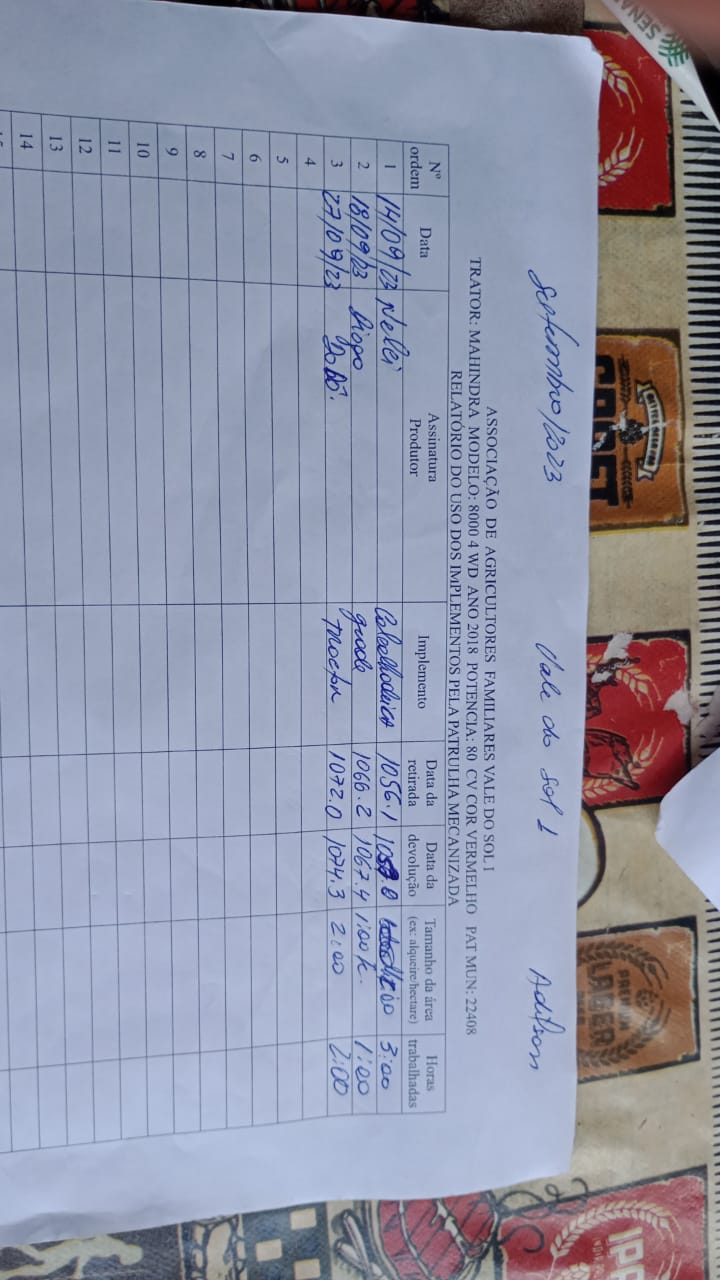 Setembro/2023 Vale do Sol 1 Adilson
ASSOCIAÇÃO DE AGRICULTORES FAMILIARES VALE DO SOL I
TRATOR: MAHINDRA MODELO: 8000 4 WD ANO 2018 POTENCIA: 80 CV COR VERMELHO PAT MUN: 22408
RELATÓRIO DO USO DOS IMPLEMENTOS PELA PATRULHA MECANIZADA
Nº ordem Data Assinatura Produtor Implemento Data da retirada Data da devolução Tamanho da área (ex: alqueire/hectare) Horas trabalhadas
1 14/09/23 Nelci 1056.1 3:00
2 18/09/23 Diogo grade 1066.2 1067.4 1:00 h. 1:00
3 27/09/23 1072.0 1074.3 2:00 2:00
4
5
6
7
8
9
10
11
12
13
14
SENAR
CADET
PREMIUM
LAGER
IPA